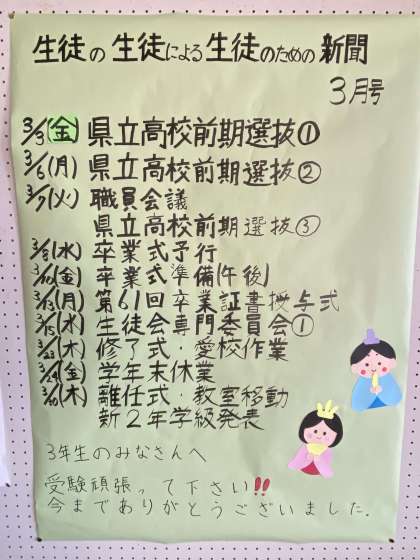 生徒の生徒による生徒のための新聞
3月号
3/3(金) 県立高校前期選抜①
3/6(月) 県立高校前期選抜②
3/7(火) 職員会議
県立高校前期選抜③
3/8(水) 卒業式予行
3/10(金) 卒業式準備(午後)
3/13(月) 第61回卒業証書授与式
3/15(水) 生徒会専門委員会①
3/23(木) 修了式・愛校作業
3/24(金) 学年末休業
3/30(木) 離任式・教室移動
新2年学級発表
3年生のみなさんへ
受験頑張って下さい!!
今までありがとうございました。